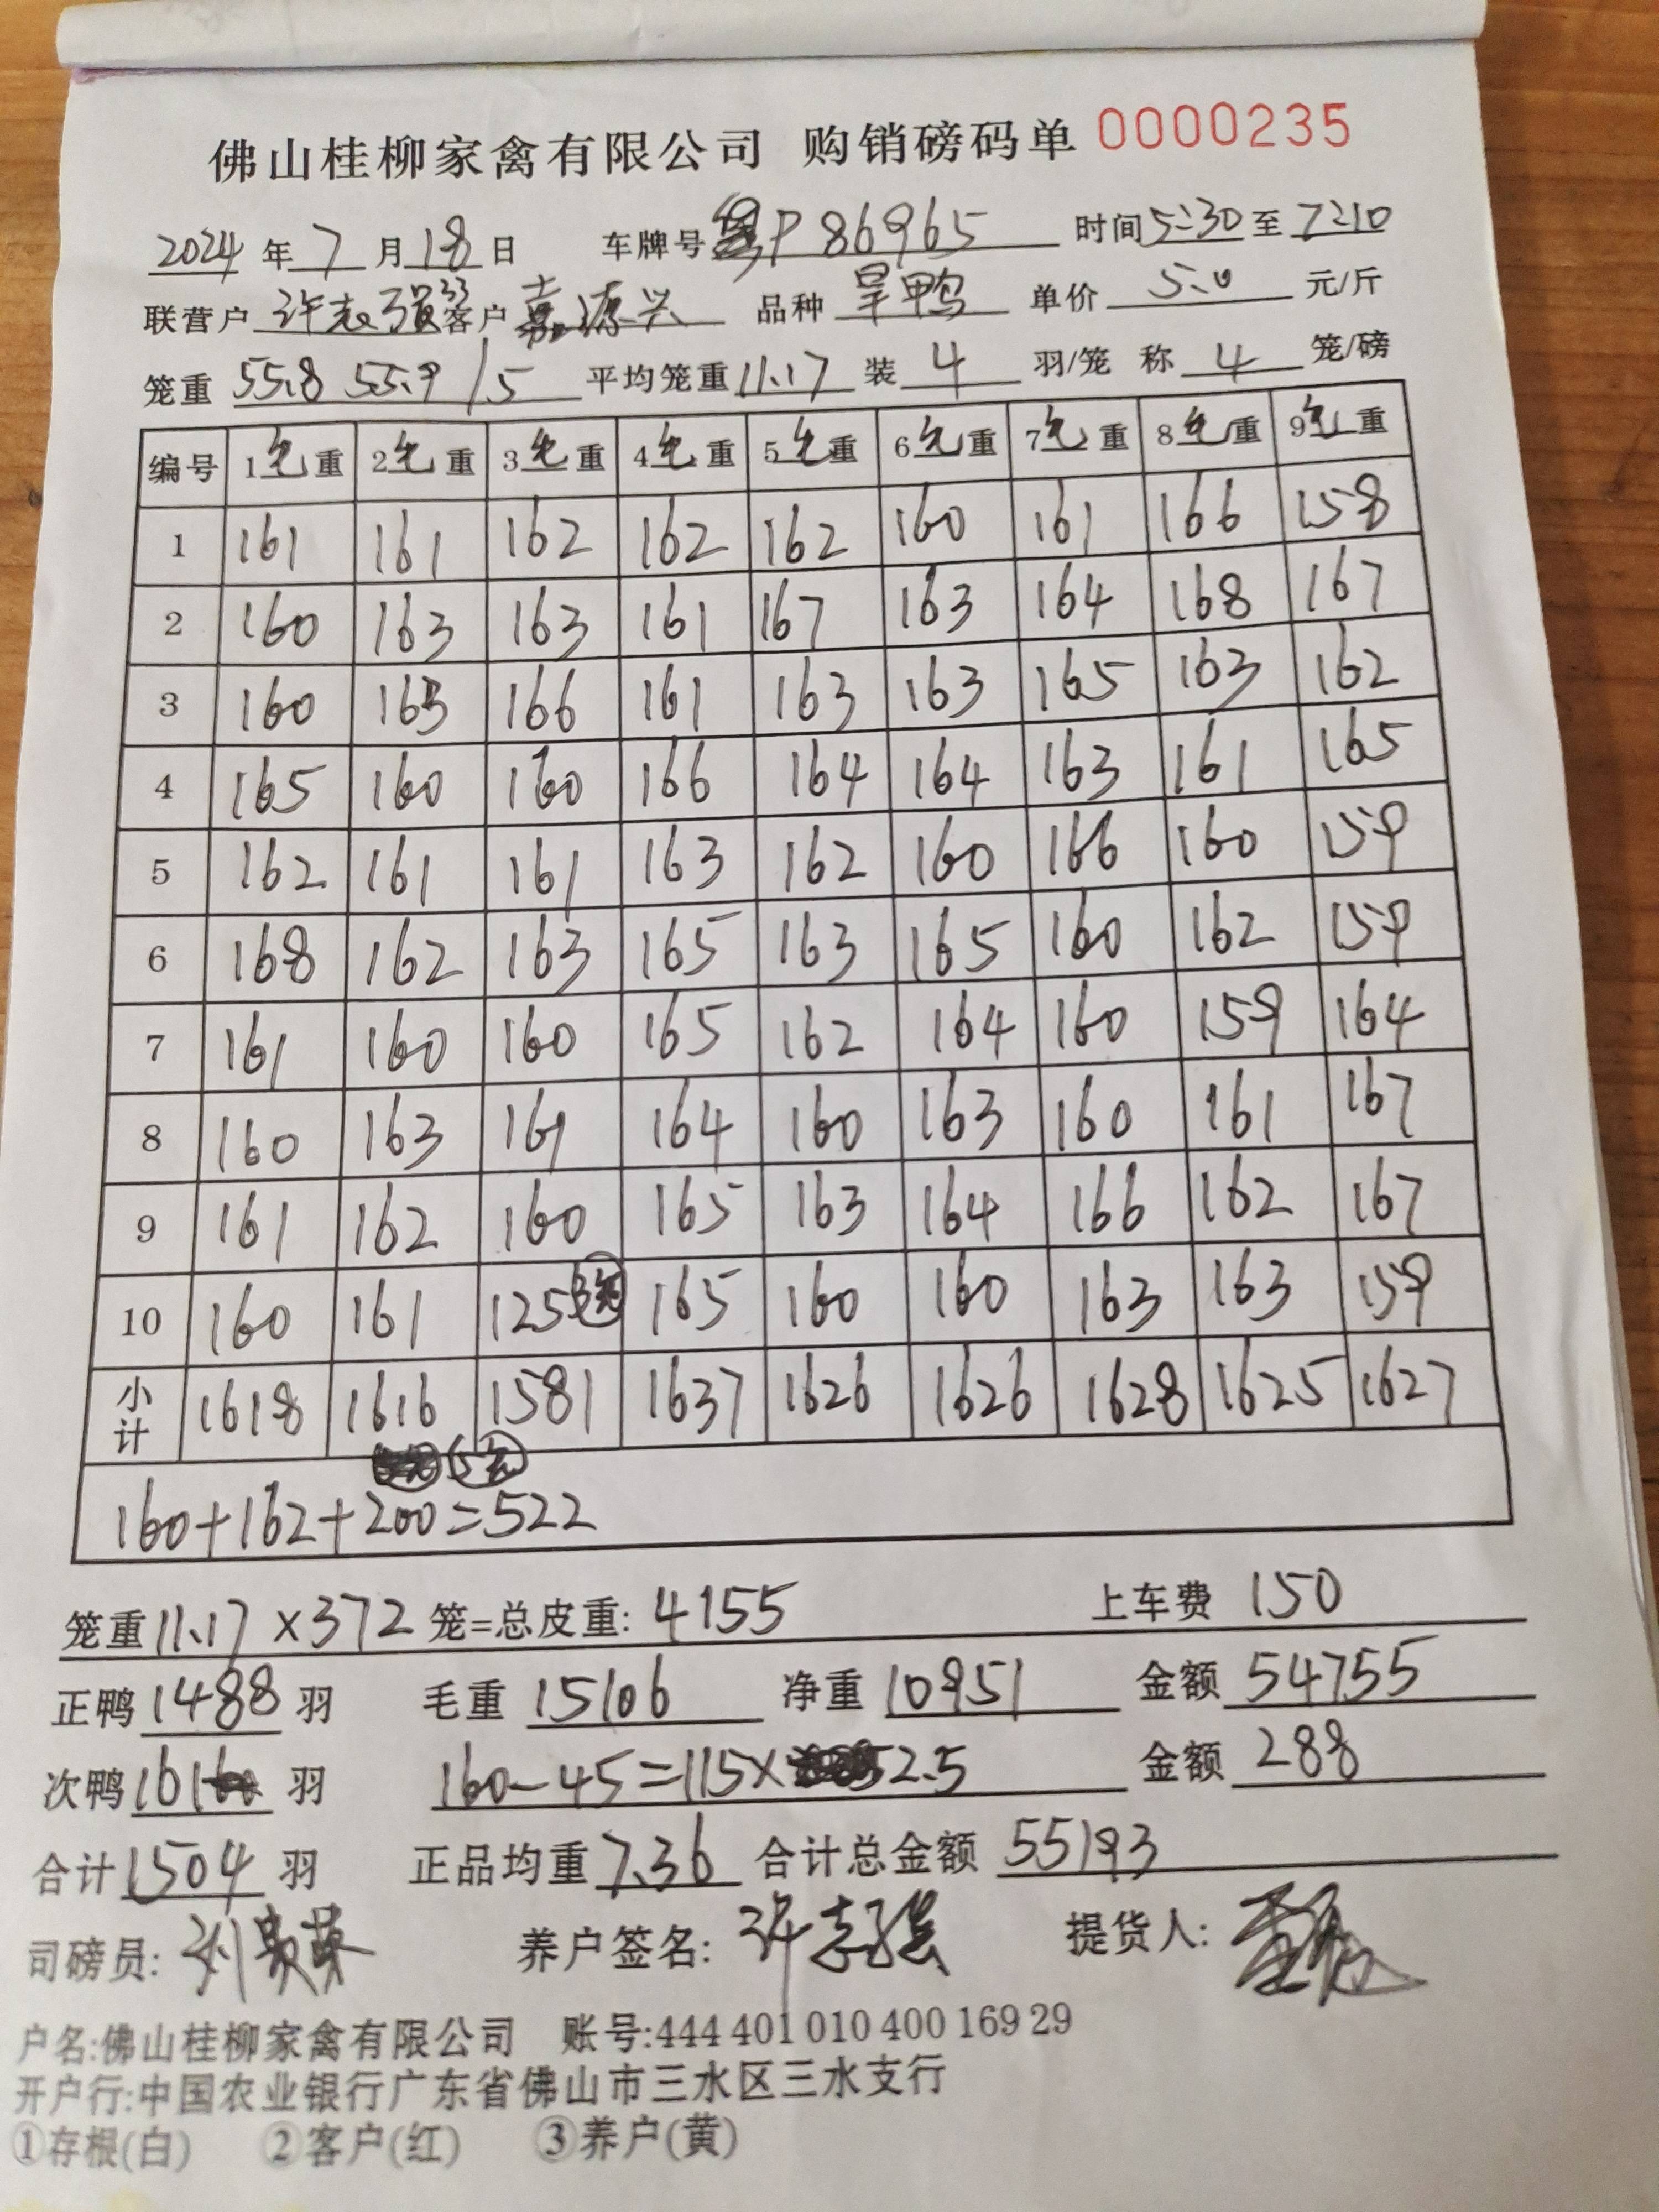 佛山桂柳家禽有限公司 购销磅码单 0000235
2024年7月18日 车牌号 粤P86965 时间5:30至7:10
联营户 许志强33 客户 嘉源兴 品种 旱鸭 单价 5.0 元/斤
笼重 55.8 55.9 /5 平均笼重11.17 装 4 羽/笼 称 4 笼/磅
编号 1毛重 2毛重 3毛重 4毛重 5毛重 6毛重 7毛重 8毛重 9毛重
1 161 161 162 162 162 160 161 166 158
2 160 163 163 161 167 163 164 168 167
3 160 163 166 161 163 163 165 163 162
4 165 160 160 166 164 164 163 161 165
5 162 161 161 163 162 160 166 160 159
6 168 162 163 165 163 165 160 162 159
7 161 160 160 165 162 164 160 159 164
8 160 163 161 164 160 163 160 161 167
9 161 162 160 165 163 164 166 162 167
10 160 161 125 3笼 165 160 160 163 163 159
小计 1618 1616 1581 1637 1626 1626 1628 1625 1627
5笼
160+162+200=522
笼重11.17×372笼=总皮重: 4155 上车费 150
正鸭1488羽 毛重 15106 净重 10951 金额 54755
次鸭16羽 160-45=115×2.5 金额 288
合计1504羽 正品均重7.36 合计总金额 55193
司磅员: 养户签名: 许志强 提货人:
户名:佛山桂柳家禽有限公司 账号:444 401 010 400 169 29
开户行:中国农业银行广东省佛山市三水区三水支行
①存根(白) ②客户(红) ③养户(黄)